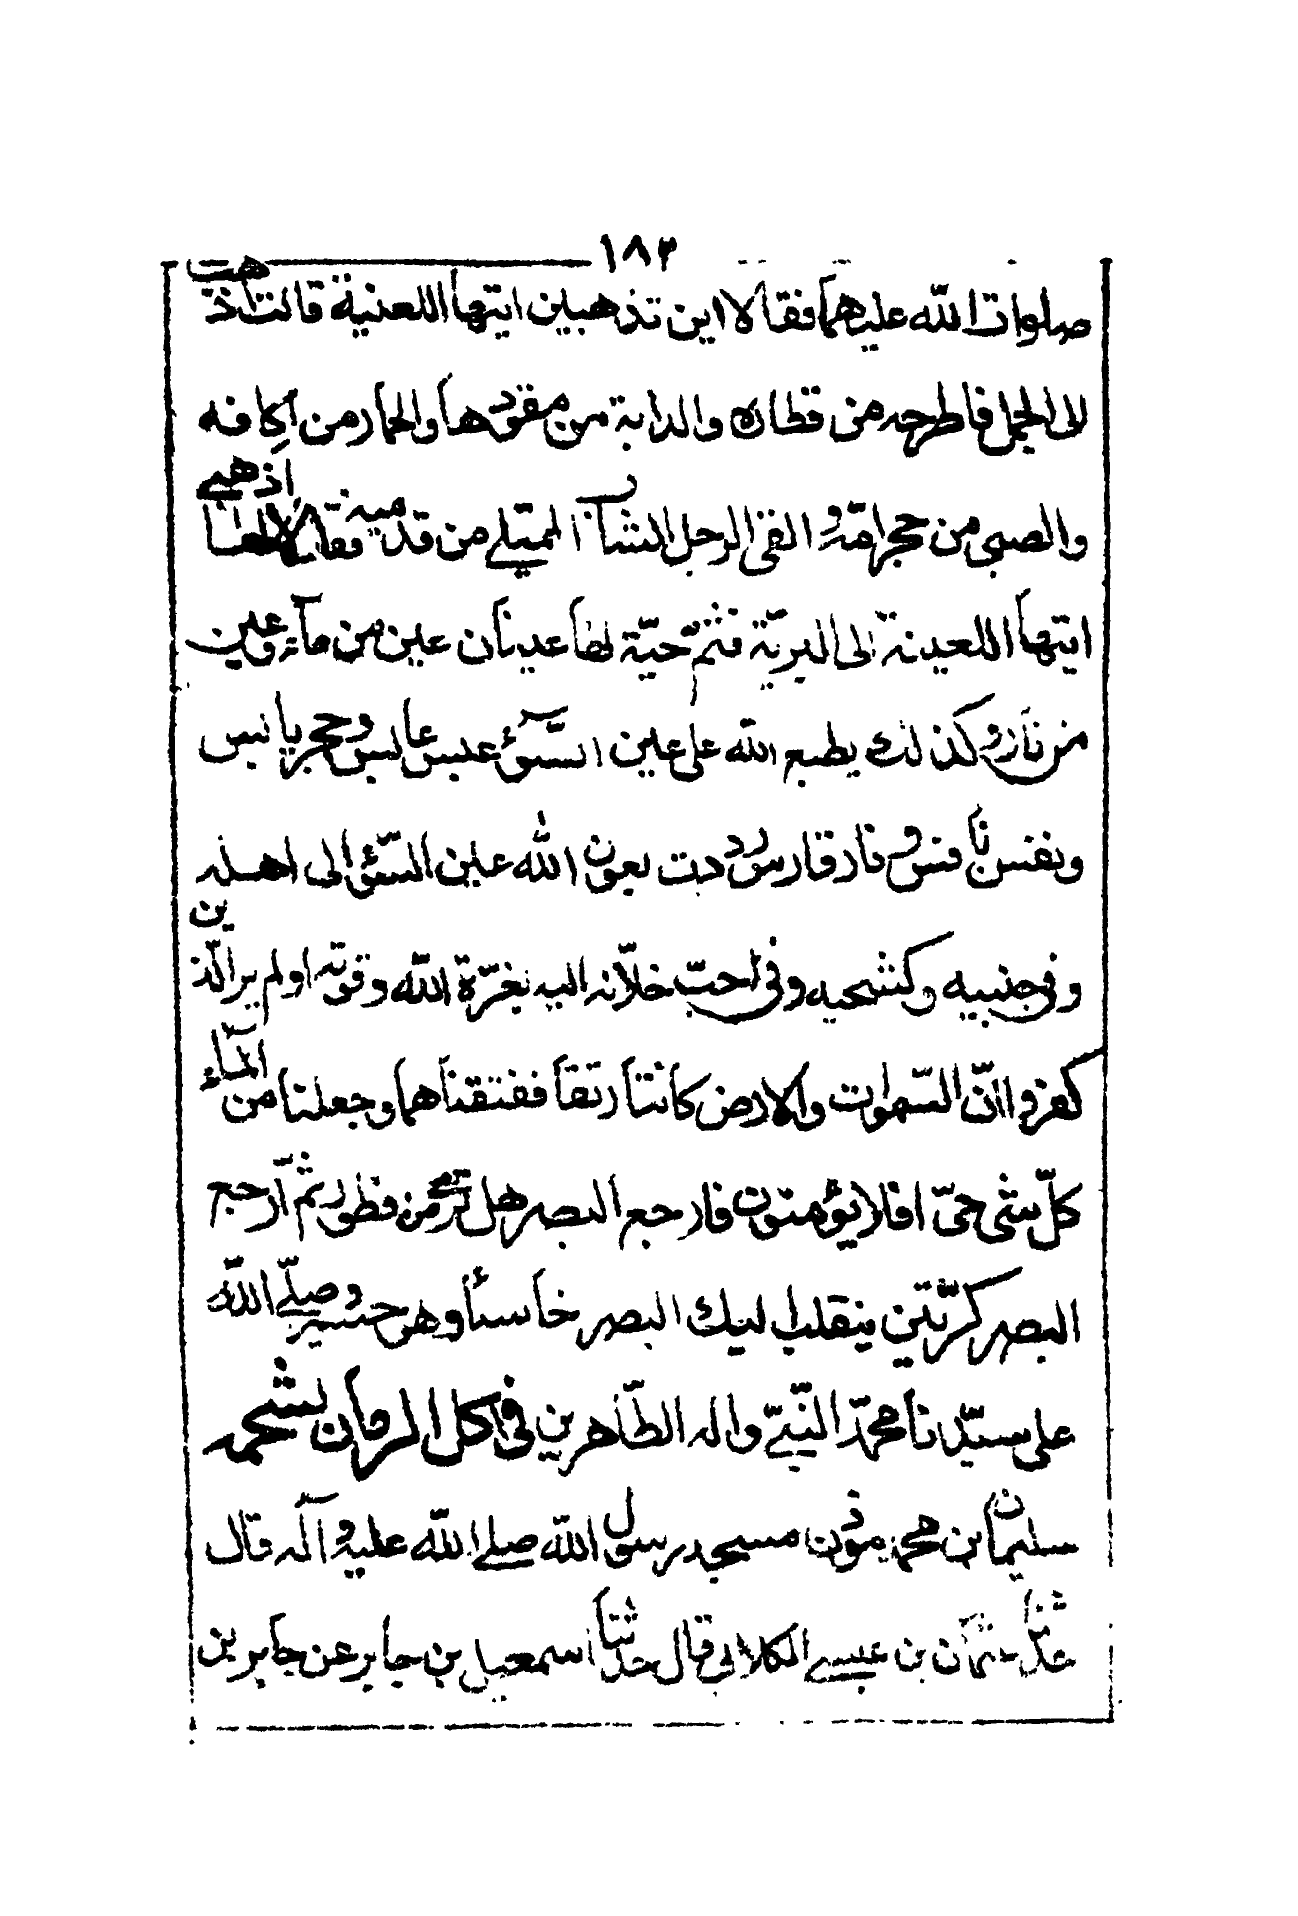 ١٨٣
صلوات الله عليهما فقالا اين تذهبين ايتها اللعنية قالت اذهب
الى الجمل فاطرحه من قطاره والدابة من مقودها والحمار من اكافه
والصبى من حجر امّه والقى الرجل الشابّ الممتلى من قدميه فقالا لها اذهبى
ايتها اللعينة الى البريّة فثمّ حيّة لها عينان عين من مآء وعين
من نار وكذلك يطبع الله على عين السّوء عبس عابس وحجر يابس
ونفس نافس ونار قارس رددت بعون الله عين السّوء الى اهله
وفى جنبيه وكشحيه وفى احبّ خلّانه اليه بعزّة الله وقوته اولم ير الّذين
كفروا انّ السّموات والارض كانتا رتقا ففتقناهما وجعلنا من المآء
كلّ شى حىّ افلا يؤمنون فارجع البصر هل ترى من فطور ثم ارجع
البصر كرّتين ينقلب اليك البصر خاسئا وهو حسير وصلّى الله
على سيّدنا محمّد النّبىّ واله الطّاهرين فى اكل الرمان بشحمه
سليمان بن محمد مؤذن مسجد رسول الله صلى الله عليه وآله قال
حدّثنا عثمان بن عيسى الكلابى قال حدثنا اسمعيل بن جابر عن جابر بن